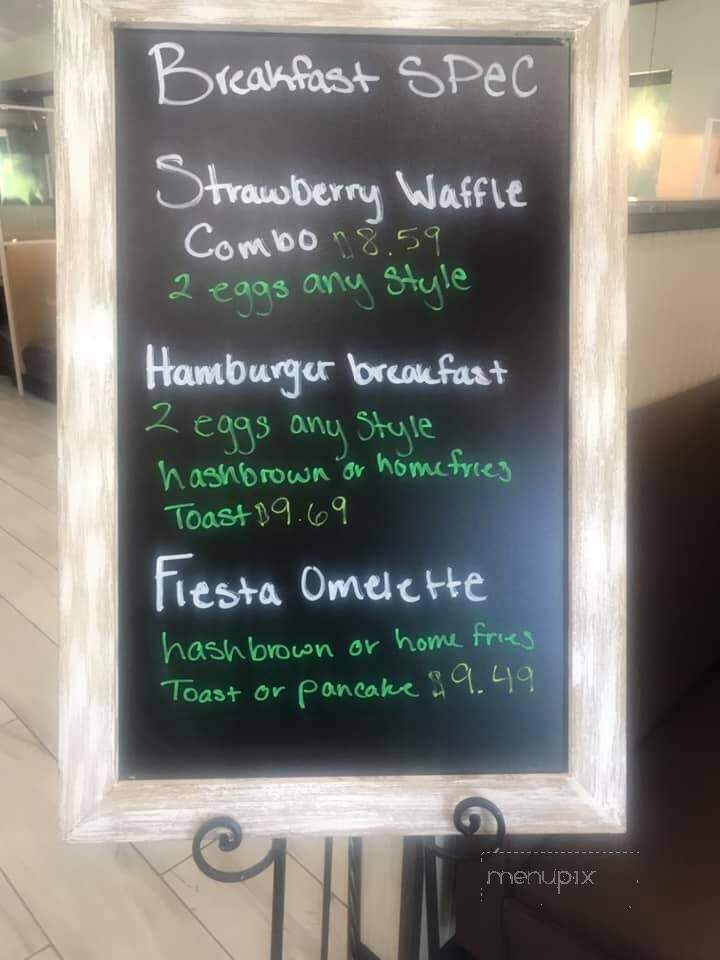 Breakfast SPeC
Strawberry Waffle
Combo $8.59
2 eggs any Style
Hamburger breakfast
2 eggs any Style
hashbrown or homefries
Toast $9.69
Fiesta Omelette
hashbrown or home fries
Toast or pancake $9.49
menupix